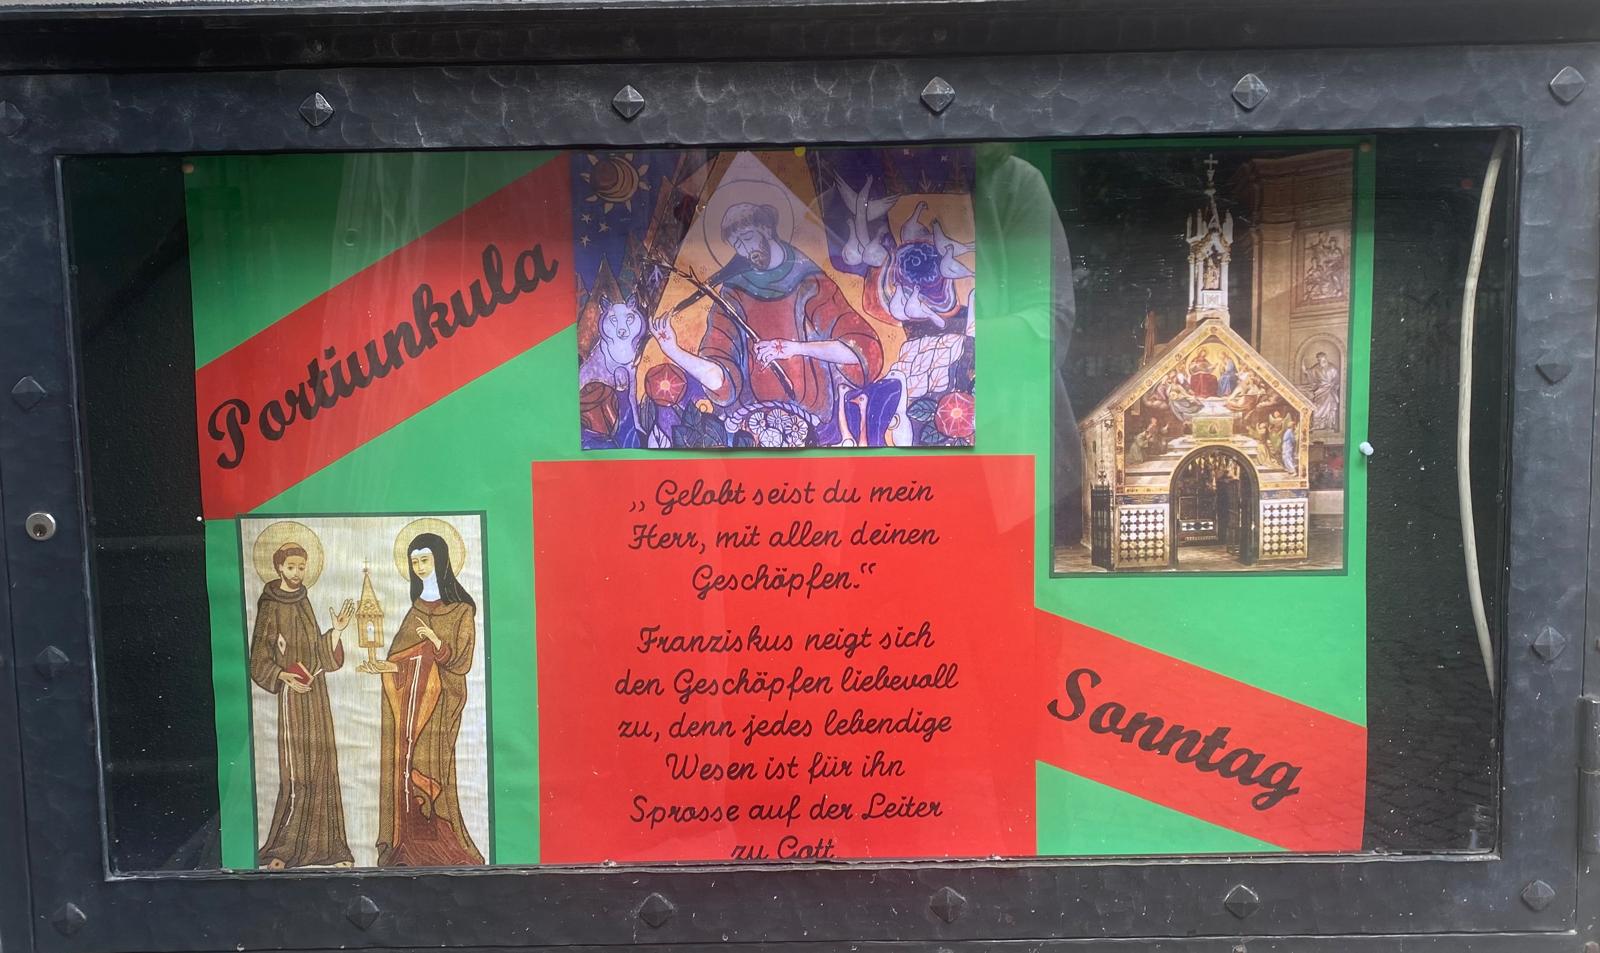 Portiunkula
„Gelobt seist du mein
Herr, mit allen deinen
Geschöpfen.“
Franziskus neigt sich
den Geschöpfen liebevoll
zu, denn jedes lebendige
Wesen ist für ihn
Sprosse auf der Leiter
zu Gott
Sonntag